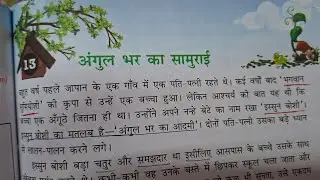 13
अंगुल भर का सामुराई
वर्ष पहले जापान के एक गाँव में एक पति-पत्नी रहते थे। कई वर्षों बाद 'भगवान
की कृपा से उन्हें एक बच्चा हुआ। लेकिन आश्चर्य की बात यह थी कि
एक अँगूठे जितना ही था। उन्होंने अपने नन्हे बेटे का नाम रखा 'इस्सुन बोशी'।
इस्सुन बोशी का मतलब है—'अंगुल भर का आदमी'। दोनों पति-पत्नी उसका बड़े ध्यान
से लालन-पालन करने लगे।
इस्सुन बोशी बड़ा चतुर और समझदार था इसीलिए आसपास के बच्चे उसके साथ
कभी-कभी वह उनके बस्ते में छिपकर स्कूल चला जाता और